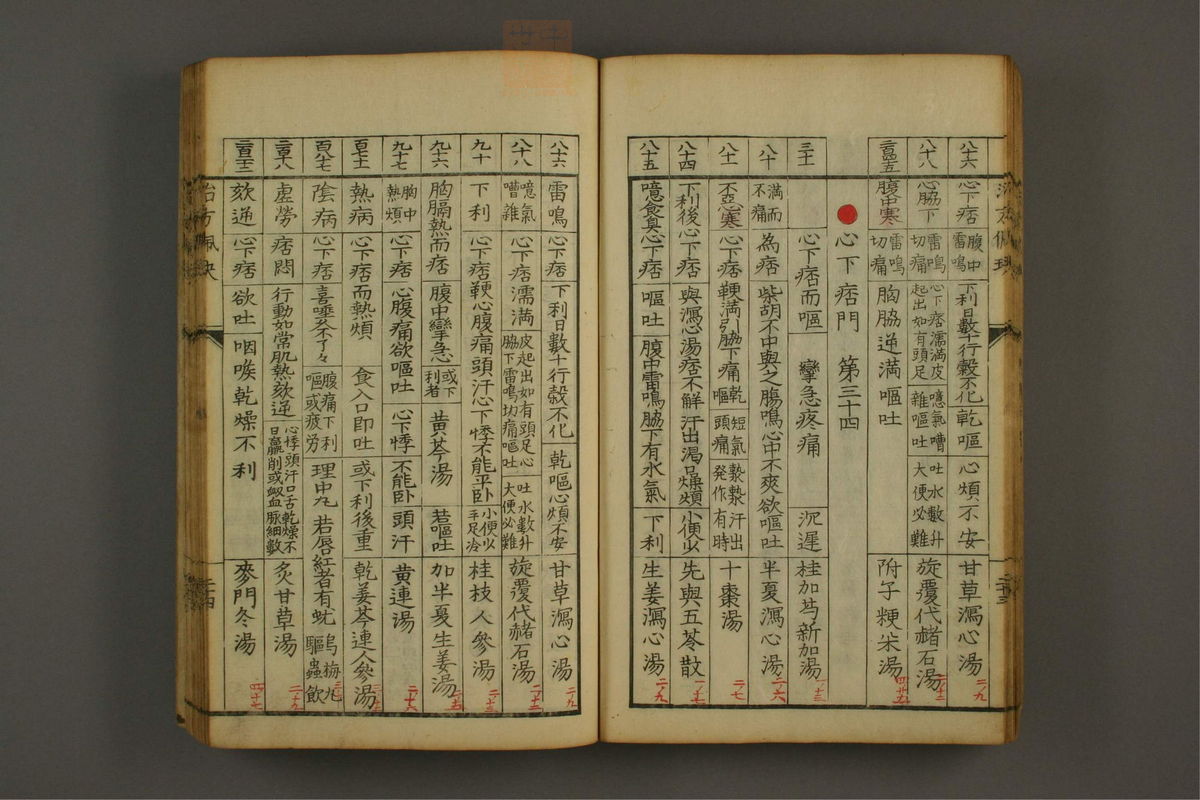 八十六 心下痞 腹中雷鳴 下利日數十行穀不化 乾嘔 心煩不安 甘草瀉心湯 二ノ九
八十八 心脇下 雷鳴切痛 心下痞濡滿皮起出如有頭足 噫氣嘈雜嘔吐 吐水數升大便必難 旋覆代赭石湯 二ノ十三
腹中寒 雷鳴切痛 胸脇逆滿嘔吐 附子粳米湯
心下痞門 第三十四
三十一 心下痞而嘔 攣急疼痛 沉遲 桂加芍新加湯
八十 滿而不痛 為痞 柴胡不中與之腸鳴心中不爽欲嘔吐 半夏瀉心湯 二ノ六
八十一 不惡寒 心下痞 鞕滿引脇下痛 乾嘔 短氣頭痛 漐漐汗出發作有時 十棗湯 二ノ七
八十四 下利後 心下痞 與瀉心湯痞不解 汗出渴燥煩 小便少 先與五苓散 一ノ七
八十五 噫食臭 心下痞 嘔吐 腹中雷鳴脇下有水氣 下利 生姜瀉心湯 二ノ九
八十六 雷鳴 心下痞 下利日數十行穀不化 乾嘔心煩不安 甘草瀉心湯 二ノ九
八十八 噫氣嘈雜 心下痞 濡滿 皮起出如有頭足心脇下雷鳴切痛嘔吐 吐水數升大便必難 旋覆代赭石湯 二ノ十三
九十 下利 心下痞鞕心腹痛頭汗心下悸不能平卧 小便少手足冷 桂枝人參湯
九十六 胸膈熱而痞 腹中攣急 或下利者 黄芩湯 若嘔吐 加半夏生姜湯
九十七 胸中熱煩 心下痞 心腹痛欲嘔吐 心下悸 不能卧 頭汗 黄連湯
熱病 心下痞而熱煩 食入口即吐 或下利後重 乾姜芩連人參湯
陰病 心下痞 喜唾久不了々 腹痛下利嘔或疲労 理中丸 若唇紅者有蚘 烏梅丸驅蟲飲
虛勞 痞悶 行動如常肌熱欬逆 心悸頭汗口舌乾燥不日羸削或衂血脈細數 炙甘草湯 二ノ十九
欬逆 心下痞 欲吐 咽喉乾燥不利 麥門冬湯 四ノ十七
治方佩訣